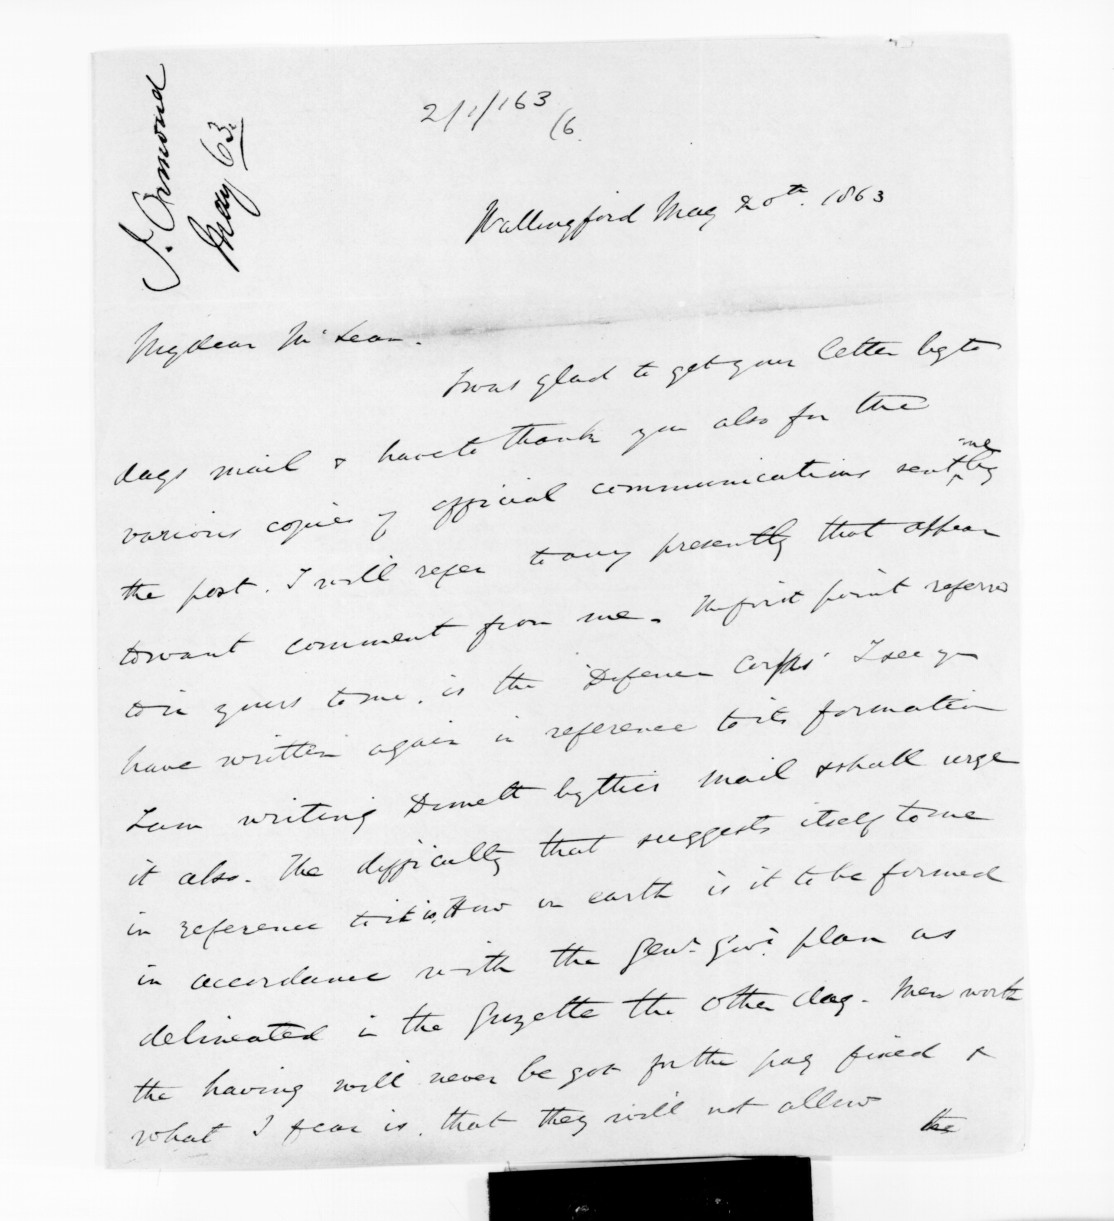 J. Ormond
May 63.
2/1/163
/6.
Wallingford May 20th. 1863
My dear McLean.
I was glad to get your letter by to
days mail & have to thank you also for the
various copies of official communications sent me by
the post. I will refer to any presently that appear
to want comment from me. The first point referred
to in yours to me, is the 'Defence Corps' I see you
have written again in reference to its formation
I am writing Domett by this mail & shall urge
it also. The difficulty that suggests itself to me
in reference to it is, How on earth is it to be formed
in accordance with the Genl. Govt. plan as
delineated in the Gazette the other day. Men worth
the having will never be got for the pay fixed &
what I fear is, that they will not allow
the